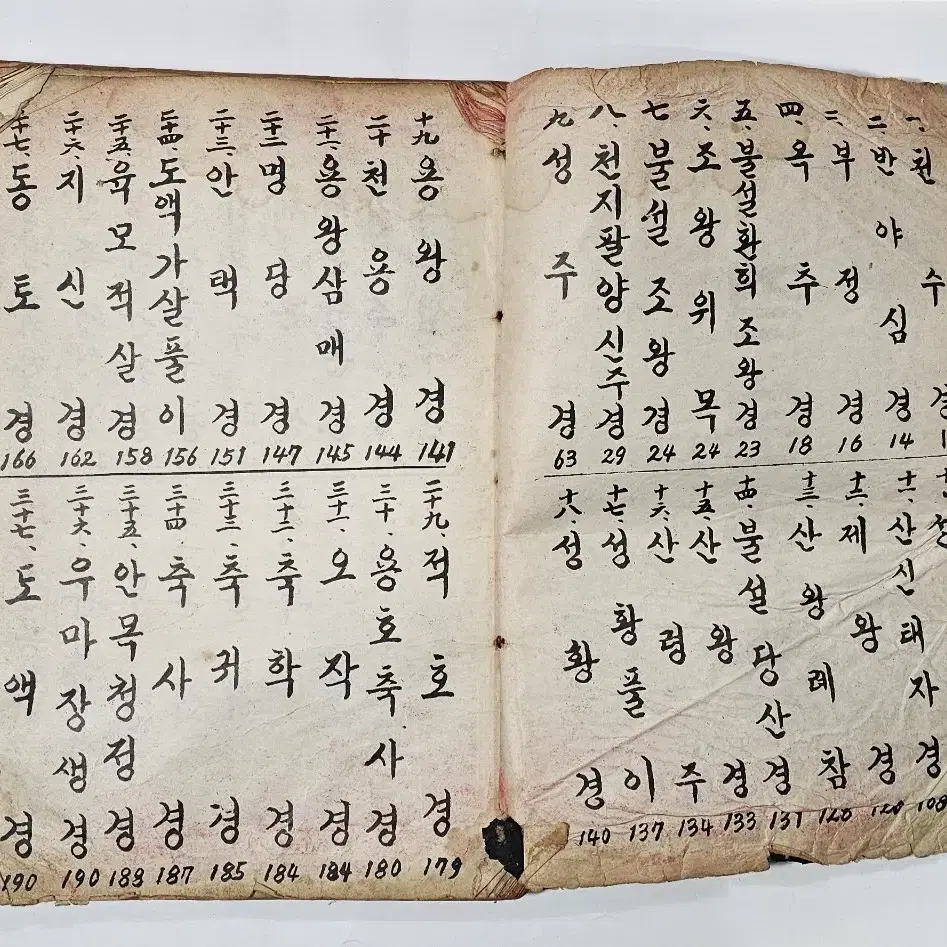 一、천수경
二、반야심경 14
三、부정경 16
四、옥추경 18
五、불설환희조왕경 23
六、조왕위목 24
七、불설조왕경 24
八、천지팔양신주경 29
九、성주경 63
十一、산신태자경 108
十二、제왕경
十三、산왕례참 128
十四、불설당산경 131
十五、산왕경 133
十六、산령주 134
十七、성황풀이 137
十八、성황경 140
十九、용왕경 141
二十、천용경 144
二十一、용왕삼매경 145
二十二、명당경 147
二十三、안택경 151
二十四、도액가살풀이 156
二十五、육모적살경 158
二十六、지신경 162
二十七、동토경 166
二十九、적호경 179
三十、용호축사경 180
三十一、오작경 184
三十二、축학경 184
三十三、축귀경 185
三十四、축사경 187
三十五、안목청정경 188
三十六、우마장생경 190
三十七、도액경 190